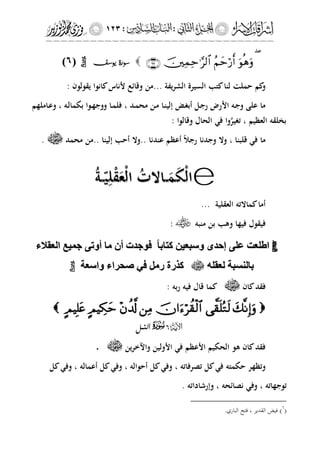 إشراقات الإسراء الجزء الثاني : البنات السابعة : ١٢٣
وَهُوَ أَرْحَمُ ٱلرَّٰحِمِينَ سورة يوسف (٦)
وكم حملت لنا كتب السيرة الشريفة ... من وقائع لأناس كانوا يقولون :
ما على وجه الأرض رجل أبغض إلينا من محمد ، فلما وجهوا بكماله ، وعاملهم
بخلقه العظيم ، تغيّروا في الحال وقالوا :
ما في قلبنا ، ولا وجدنا رجلاً أعظم عندنا .. ولا أحب إلينا .. من محمد .
الْكَمَالاتُ الْعَقْلِيَّةُ
أما كمالاته العقلية ...
فيقول فيها وهب بن منبه :
اطلعت على إحدى وسبعين كتاباً فوجدت أن ما أوتى جميع العقلاء
بالنسبة لعقله ﷺ كذرة رمل في صحراء واسعة
فقد كان ﷺ كما قال فيه ربه :
وَإِنَّكَ لَتُلَقَّى ٱلْقُرْءَانَ مِن لَّدُنْ حَكِيمٍ عَلِيمٍ
الآية ٦ سورة النمل
فقد كان هو الحكيم الأعظم في الأولين والآخرين ﷺ .
وتظهر حكمته في كل تصرفاته ، وفي كل أحواله ، وفي كل أعماله ، وفي كل
توجهاته ، وفي نصائحه ، وإرشاداته .
(٦) فيض القدير ، فتح الباري.